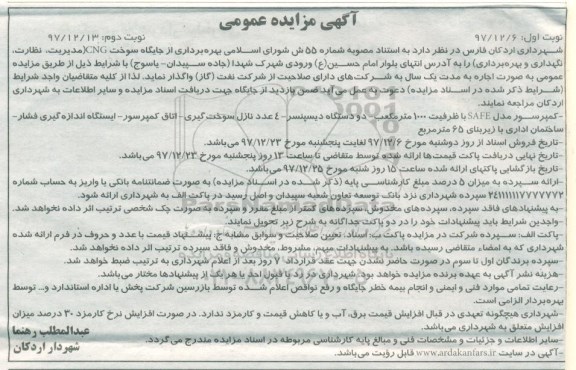 آگهی مزایده عمومی
نوبت اول: ۹۷/۱۲/۶
نوبت دوم: ۹۷/۱۲/۱۳
شهرداری اردکان فارس در نظر دارد به استناد مصوبه شماره ۵۵ ش شورای اسلامی بهره‌برداری از جایگاه سوخت CNG(مدیریت، نظارت،
نگهداری و بهره‌برداری) را به آدرس انتهای بلوار امام حسین(ع) ورودی شهرک شهدا (جاده سپیدان- یاسوج) با شرایط ذیل از طریق مزایده
عمومی به صورت اجاره به مدت یک سال به شرکت‌های دارای صلاحیت از شرکت نفت (گاز) واگذار نماید. لذا از کلیه متقاضیان واجد شرایط
(شرایط ذکر شده در اسناد مزایده) دعوت به عمل می‌آید ضمن بازدید از جایگاه جهت دریافت اسناد مزایده و سایر اطلاعات به شهرداری
اردکان مراجعه نمایند.
-کمپرسور مدل SAFE با ظرفیت ۱۰۰۰ مترمکعب- دو دستگاه دیسپنسر- ۴ عدد نازل سوخت‌گیری- اتاق کمپرسور- ایستگاه اندازه‌گیری فشار-
ساختمان اداری با زیربنای ۶۵ مترمربع
-تاریخ فروش اسناد از روز دوشنبه مورخ ۹۷/۱۲/۶ لغایت پنجشنبه مورخ ۹۷/۱۲/۲۳ می‌باشد.
-تاریخ نهایی دریافت پاکت قیمت‌ها ارائه شده توسط متقاضی تا ساعت ۱۳ روز پنجشنبه مورخ ۹۷/۱۲/۲۳ می‌باشد.
-تاریخ بازگشایی پاکتهای ارائه شده ساعت ۱۵ روز شنبه مورخ ۹۷/۱۲/۲۵ می‌باشد.
-ارائه سپرده به میزان ۵ درصد مبلغ کارشناسی پایه (ذکر شده در اسناد مزایده) به صورت ضمانتنامه بانکی یا واریز به حساب شماره
سپرده شهرداری نزد بانک توسعه تعاون شعبه سپیدان و اصل رسید در پاکت الف به شهرداری ارائه شود.
-به پیشنهادهای فاقد سپرده، سپرده‌های مخدوش، سپرده‌های کمتر از مبلغ مقرر و سپرده به صورت چک شخصی ترتیب اثر داده نخواهد شد.
-واجدین شرایط باید پیشنهادات خود را در دو پاکت جداگانه به شرح زیر تحویل نمایند.
-پاکت الف: سپرده شرکت در مزایده پاکت ب: اسناد تعیین صلاحیت و سوابق مشابه ج: پیشنهاد قیمت با عدد و حروف در فرم ارائه شده
شهرداری که به امضاء متقاضی رسیده باشد. به پیشنهادات مبهم، مشروط، مخدوش و فاقد سپرده ترتیب اثر داده نخواهد شد.
-سپرده برندگان اول تا سوم در صورت حاضر نشدن جهت عقد قرارداد ۷ روز بعد از اعلام شهرداری به ترتیب ضبط خواهد شد.
-هزینه نشر آگهی به عهده برنده مزایده خواهد بود. شهرداری در رد یا قبول احد یا هر یک از پیشنهادها مختار می‌باشد.
-رعایت تمامی موارد فنی و ایمنی و انجام بیمه خطر جایگاه و رفع نواقص اعلام شده توسط بازرسین شرکت پخش یا اداره استاندارد و.. توسط
بهره‌بردار الزامی است.
-شهرداری هیچگونه تعهدی در قبال افزایش قیمت برق، آب و یا کاهش قیمت و کارمزد ندارد. در صورت افزایش نرخ کارمزد ۳۰ درصد میزان
افزایش متعلق به شهرداری می‌باشد.
-سایر اطلاعات و جزئیات و مشخصات فنی و مبالغ پایه کارشناسی مربوطه در اسناد مزایده مندرج می‌گردد.
-آگهی در سایت www.ardakanfars.ir قابل رؤیت می‌باشد.
عبدالمطلب رهنما
شهردار اردکان